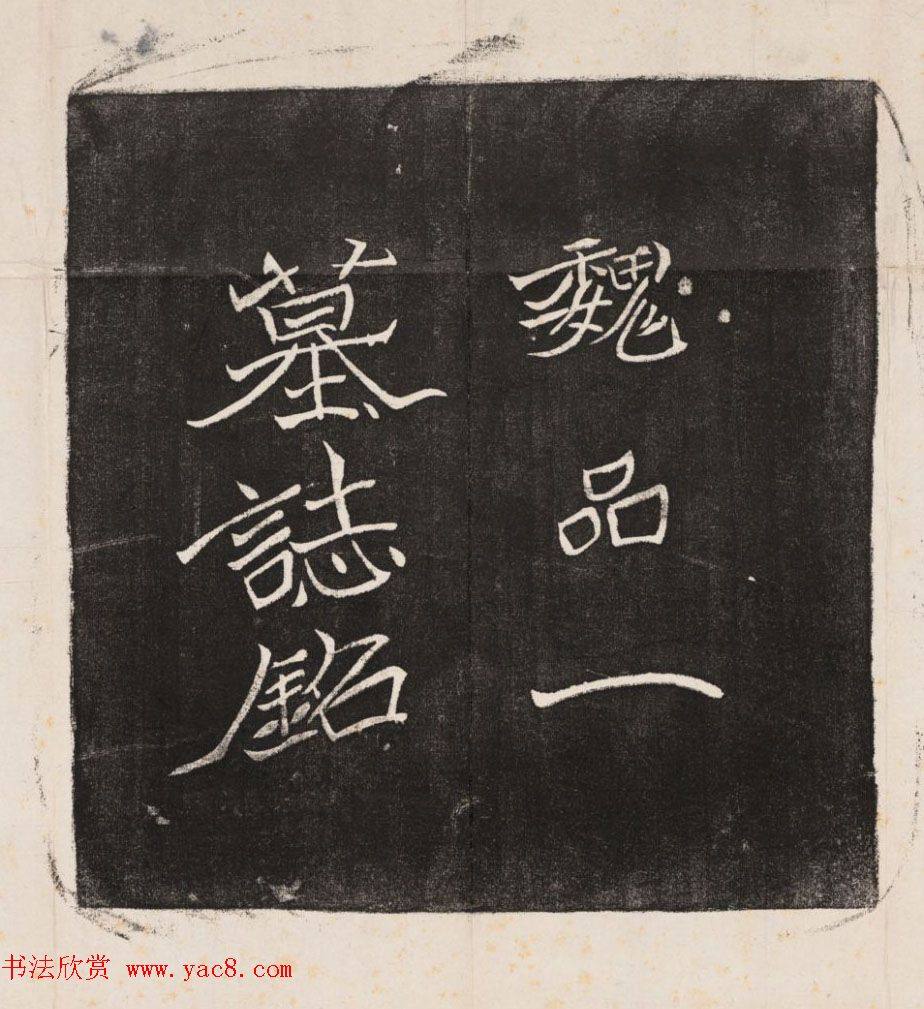 魏品一
墓誌銘
书法欣赏 www.yac8.com